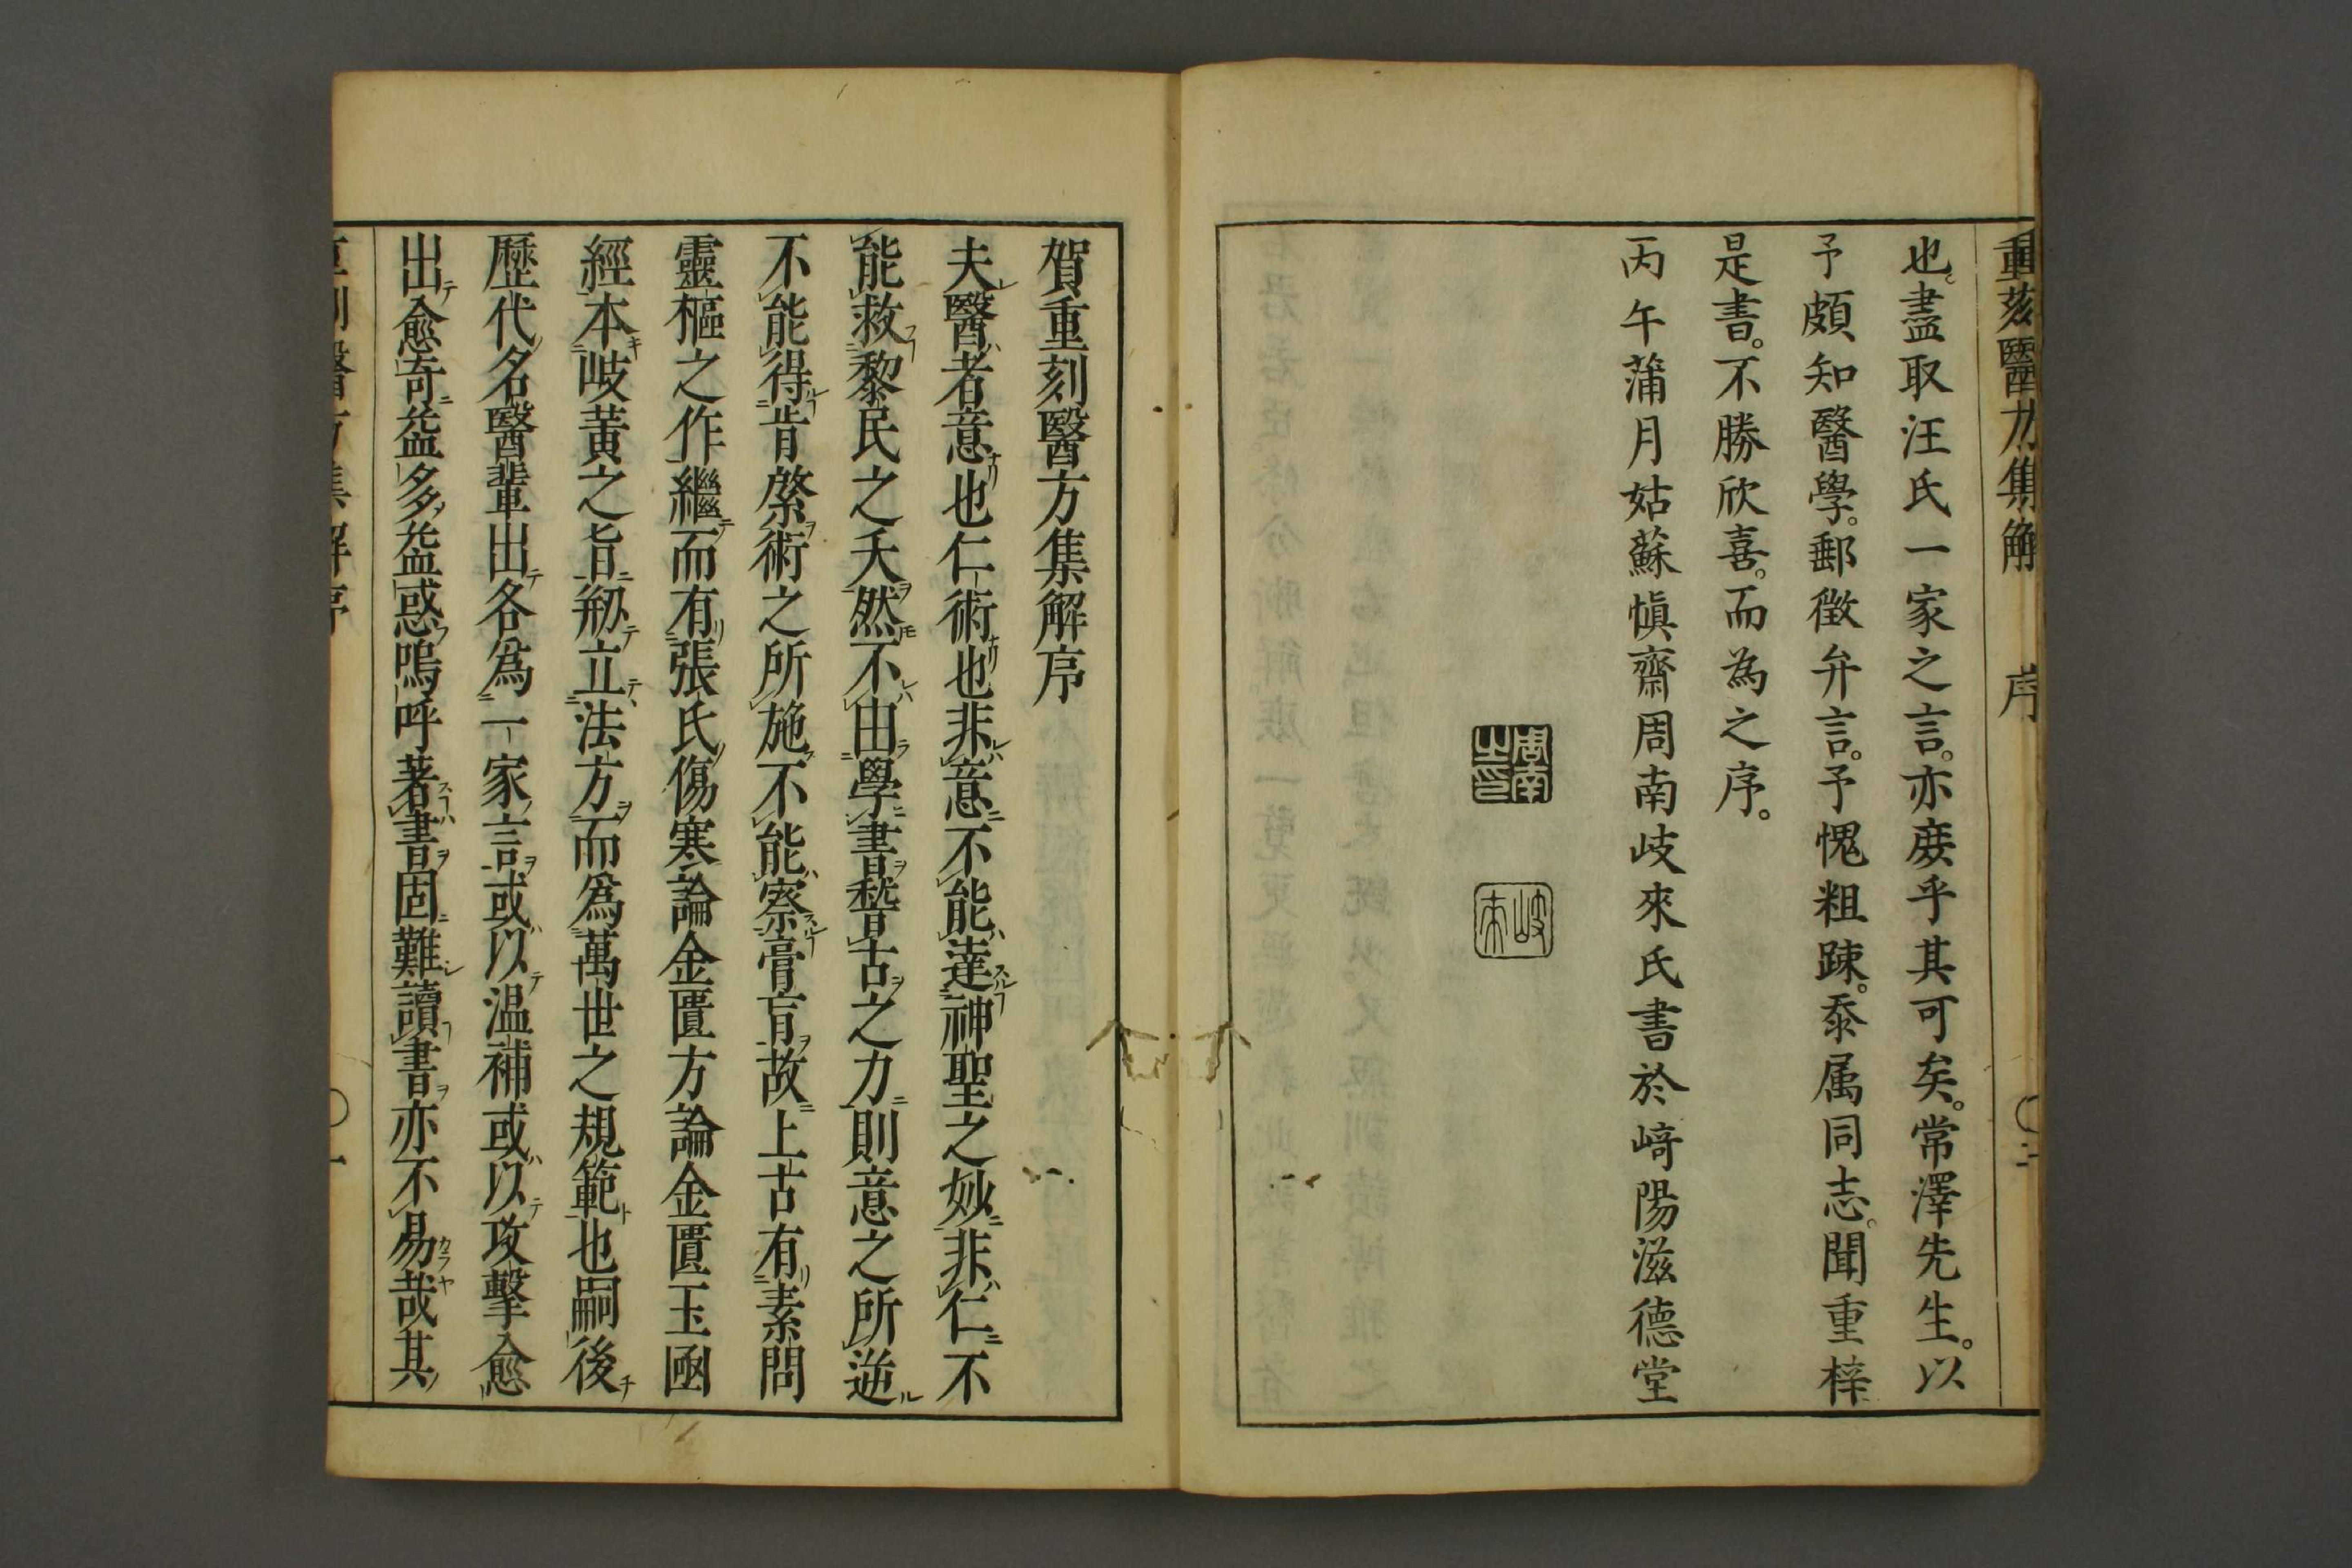 重刻醫方集解　序　〇二
也。盡取汪氏一家之言。亦庶乎其可矣。常澤先生。以
予頗知醫學。郵徵弁言。予愧粗踈。忝属同志。聞重梓
是書。不勝欣喜。而為之序。
丙午蒲月姑蘇慎齋周南岐來氏書於﨑陽滋德堂
周南之印
岐來
賀重刻醫方集解序
夫醫者意也仁術也非意不能達神聖之妙非仁不
能救黎民之夭然不由學書稽古之力則意之所逆
不能得肯綮術之所施不能察膏肓故上古有素問
靈樞之作繼而有張氏傷寒論金匱方論金匱玉函
經本岐黃之旨剏立法方而爲萬世之規範也嗣後
歷代名醫輩出各爲一家言或以温補或以攻擊愈
出愈奇益多益惑嗚呼著書固難讀書亦不易哉其
重刻醫方集解序　〇一